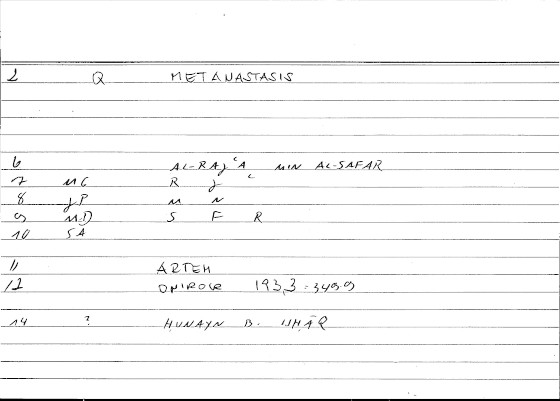 1 Q METANASTASIS
6 AL-RAJʿA MIN AL-SAFAR
7 MC R J ʿ
8 JP M N
9 MD S F R
10 SA
11 ARTEM
12 ONIROCR 193,3 = 349,9
14 ? HUNAYN B. ISHĀQ